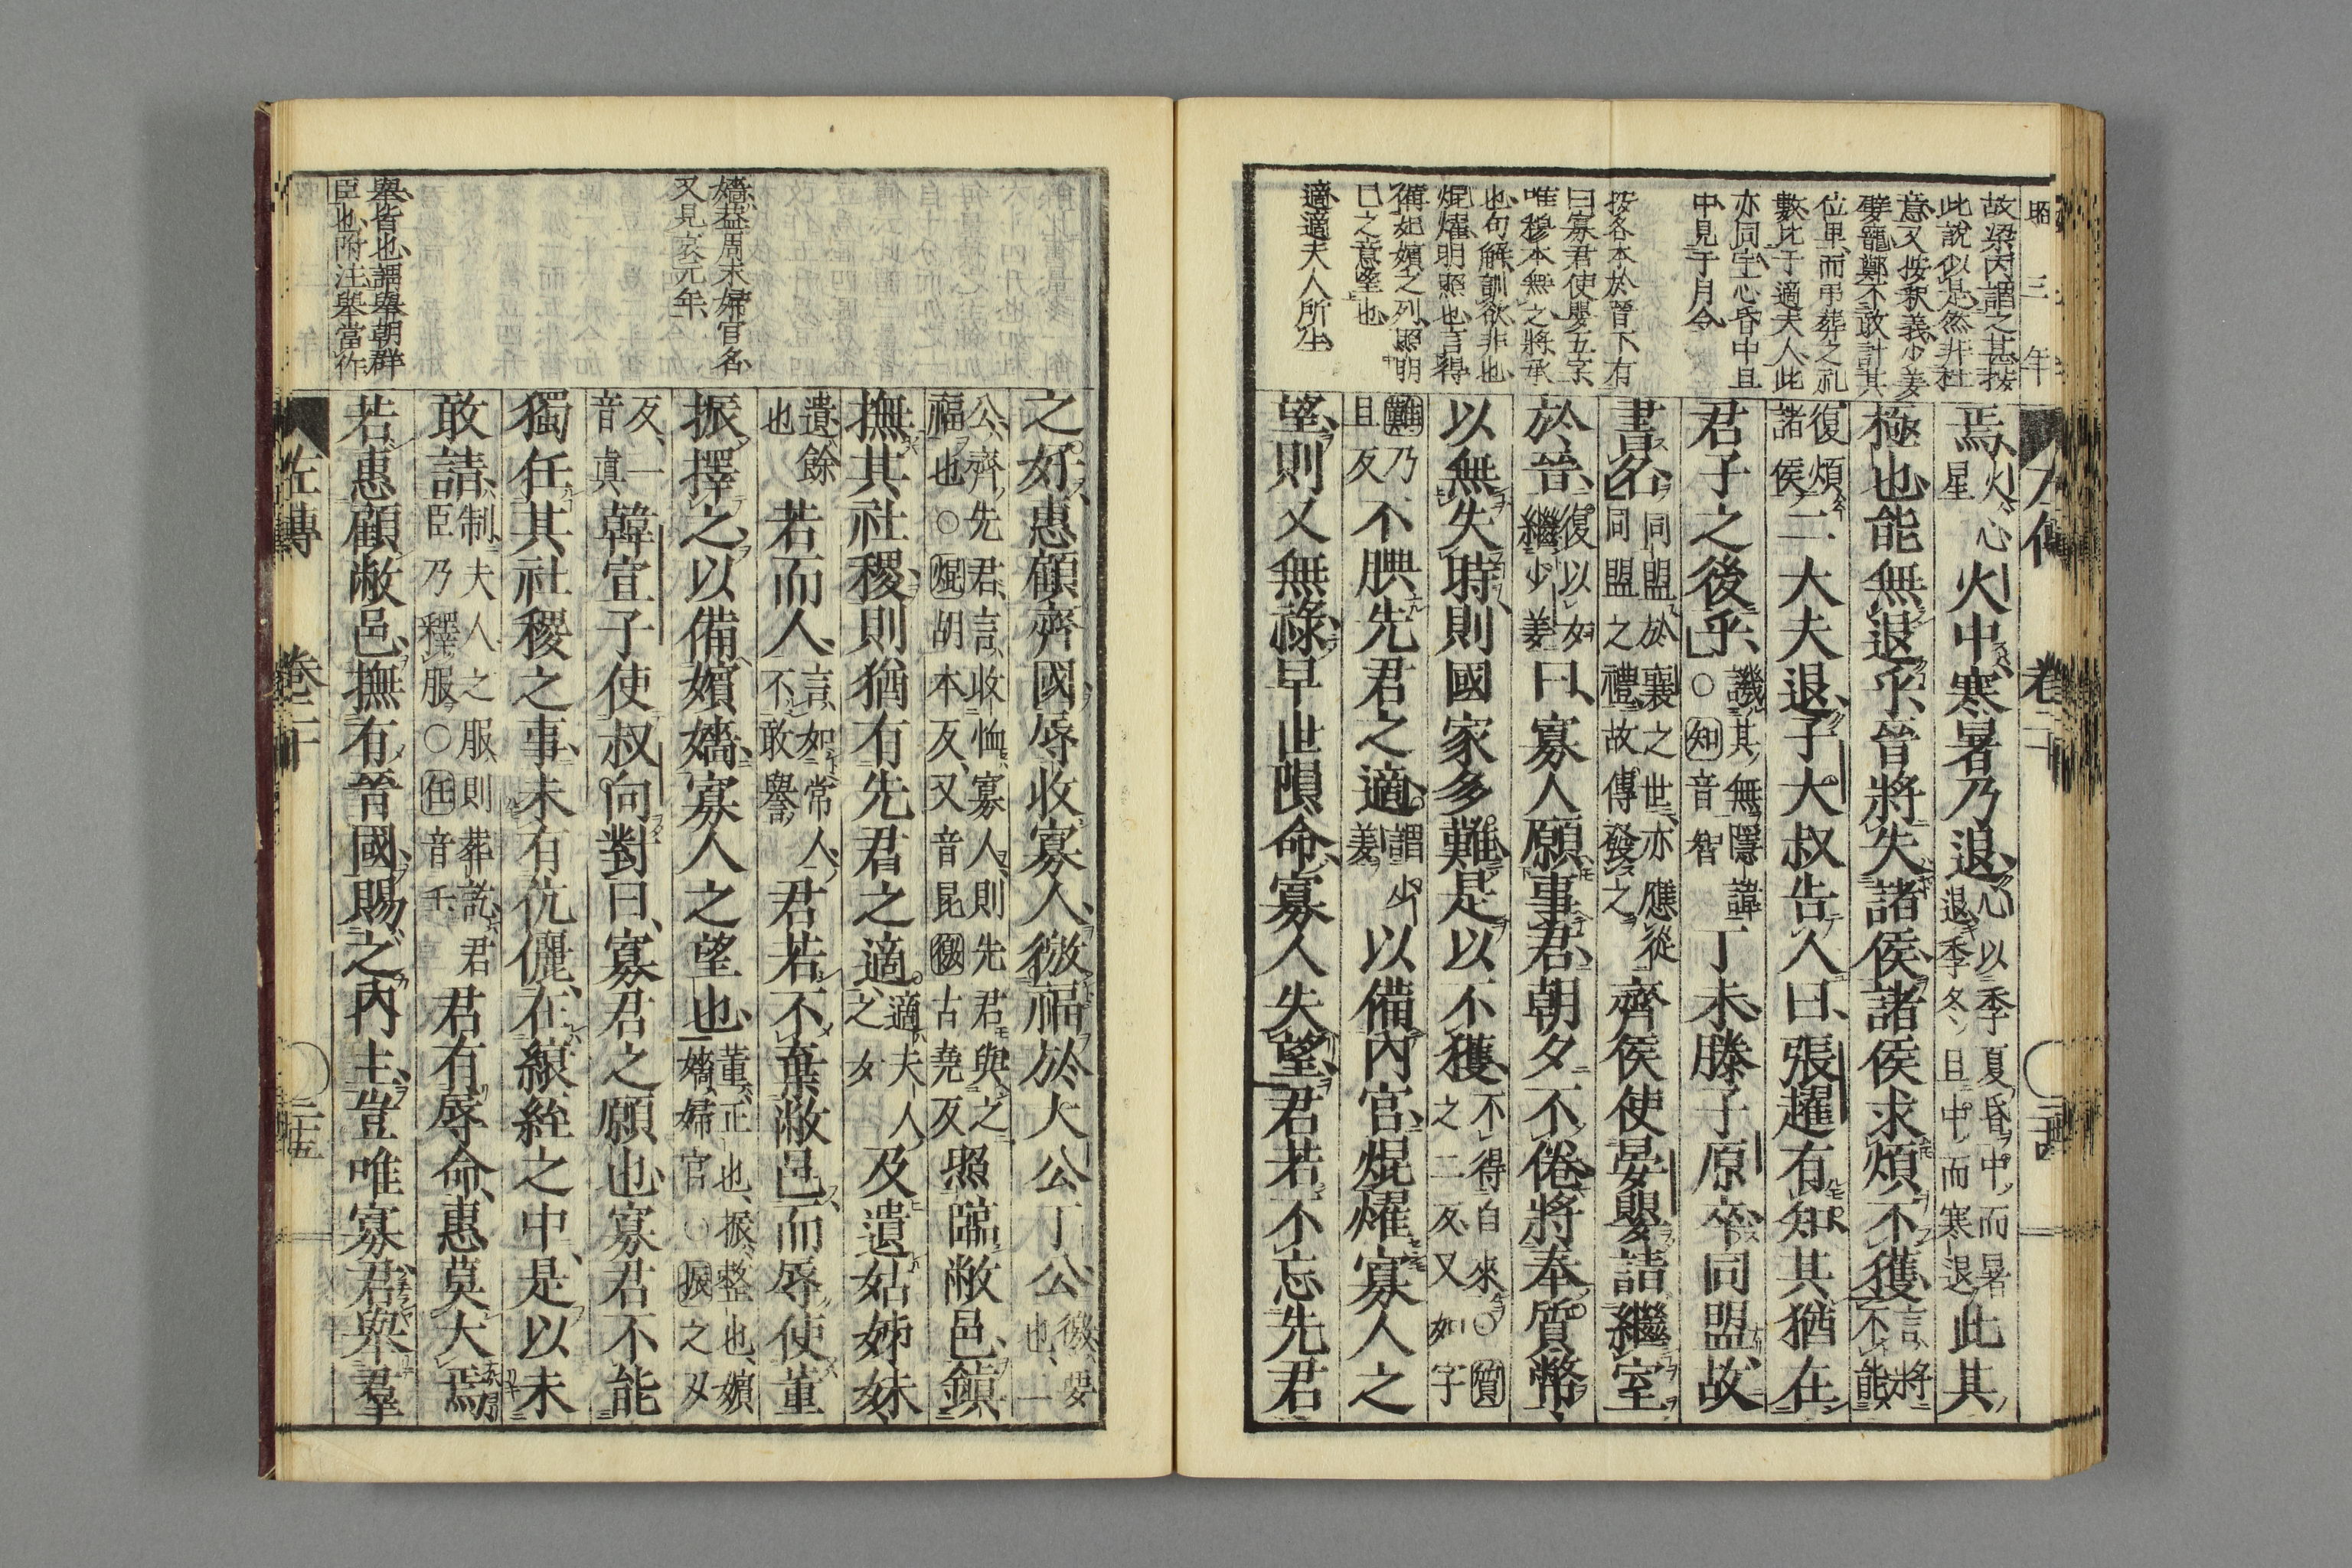 昭 三 年
故梁丙謂之甚按
此說似是然非杜
意又按釈義少姜
嬖寵鄭不敢計其
位卑而弔葬之礼
數比于適夫人此
亦同宇心昏中且
中見于月令
按各本於晉下有
曰寡君使嬰五字
唯穆本無之將承
也句解訓欲非也
焜燿明照也言得
備妃嬪之列照明
己之意望也
適適夫人所生
卷二十
焉火心星火中寒暑乃退心以季夏昏中而暑退季冬旦中而寒退此其
極也能無退乎晉將失諸侯諸侯求煩不獲言將不能
復煩諸侯二大夫退子大叔告人曰張趯有知其猶在
君子之後乎譏其無隱諱○知音智丁未滕子原卒同盟故
書名同盟於襄之世亦應從同盟之禮故傳發之齊侯使晏嬰請繼室
於晉復以女繼少姜曰寡人願事君朝夕不倦將奉質幣
以無失時則國家多難是以不獲不得自來○質之二反又如字
難乃且反不腆先君之適謂少姜以備內官焜燿寡人之
望則又無祿早世隕命寡人失望君若不忘先君
嬙蓋周末婦官名
又見哀元年
舉皆也謂舉朝群
臣也附注舉當作
之好惠顧齊國辱收寡人徼福於大公丁公徼要也二
公齊先君言收恤寡人則先君與之福也○焜胡本反又音昆徼古堯反照臨敝邑鎮
撫其社稷則猶有先君之適適夫人之女及遺姑姊妹
遺餘也若而人言如常人不敢譽君若不棄敝邑而辱使董
振擇之以備嬪嬙寡人之望也董正也振整也嬪嬙婦官○振之刃
反一音真韓宣子使叔向對曰寡君之願也寡君不能
獨任其社稷之事未有伉儷在縗絰之中是以未
敢請制夫人之服則葬訖君臣乃釋服○任音壬君有辱命惠莫大焉
若惠顧敝邑撫有晉國賜之內主豈唯寡君舉羣
左傳 卷二十 二十五